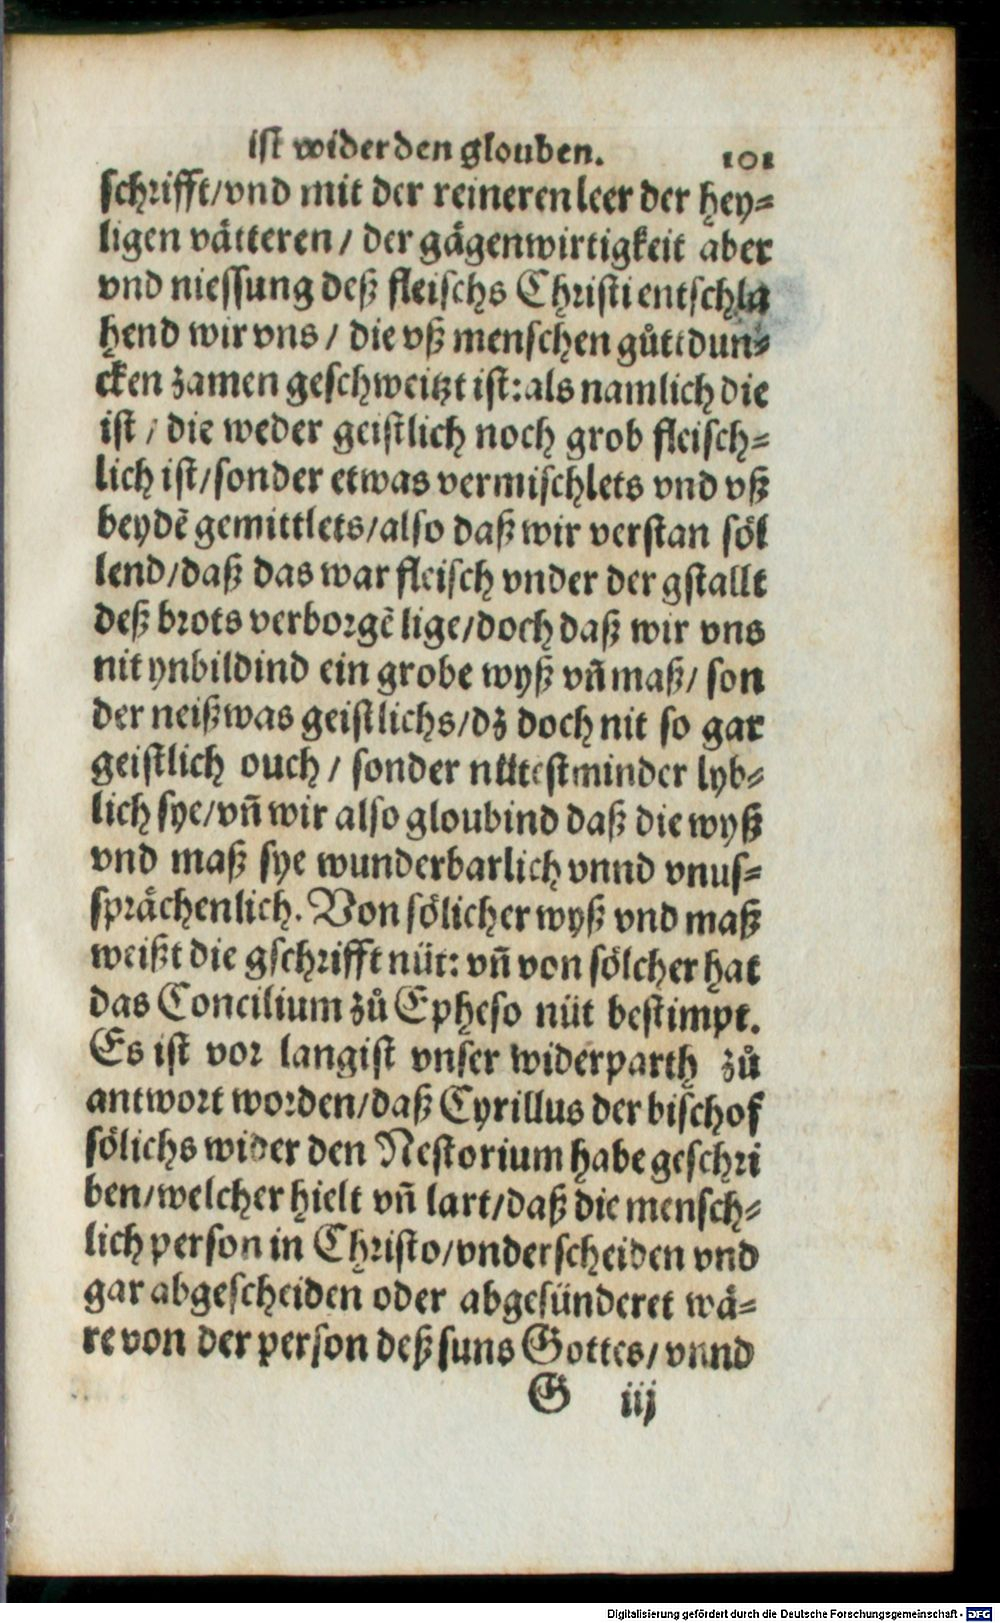 ist wider den glouben. 101
schrifft/vnd mit der reineren leer der hey⸗
ligen vätteren / der gägenwirtigkeit aber
vnd niessung deß fleischs Christi entschla
hend wir vns / die vß menschen gůttdun⸗
cken zamen geschweitzt ist: als namlich die
ist / die weder geistlich noch grob fleisch⸗
lich ist/sonder etwas vermischlets vnd vß
beydẽ gemittlets/also daß wir verstan söl
lend/daß das war fleisch vnder der gstallt
deß brots verborgẽ lige/doch daß wir vns
nit ynbildind ein grobe wyß vñ maß/ son
der neißwas geistlichs/dz doch nit so gar
geistlich ouch / sonder nütestminder lyb⸗
lich sye/vñ wir also gloubind daß die wyß
vnd maß sye wunderbarlich vnnd vnus⸗
sprächenlich. Von sölicher wyß vnd maß
weißt die gschrifft nüt: vñ von sölcher hat
das Concilium zů Epheso nüt bestimpt.
Es ist vor langist vnser widerparth zů
antwort worden/daß Cyrillus der bischof
sölichs wider den Nestorium habe geschri
ben/welcher hielt vñ lart/daß die mensch⸗
lich person in Christo/vnderscheiden vnd
gar abgescheiden oder abgesünderet wä⸗
re von der person deß suns Gottes/ vnnd
G iij
Digitalisierung gefördert durch die Deutsche Forschungsgemeinschaft - DFG